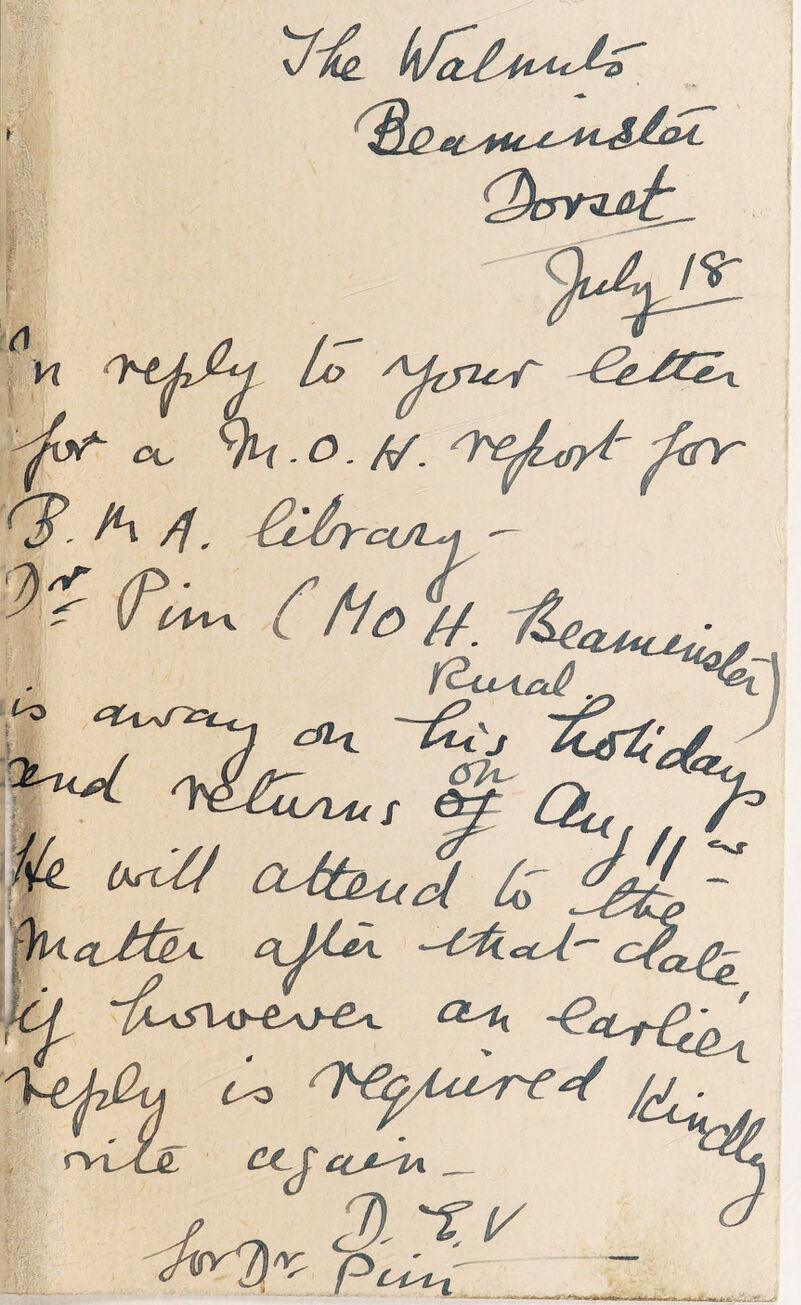 The Walnuts
Beaminster
Dorset
July 18
In reply to your letter
for a M.O.H. report for
B.M.A. library -
Dr Pim (MOH. Beaminster)
Rural.
is away on his holidays
and returns on Aug 11th
He will attend to the
matter after that date,
if however an earlier
reply is required kindly
rite again -
D.E.V
for Dr. Pim